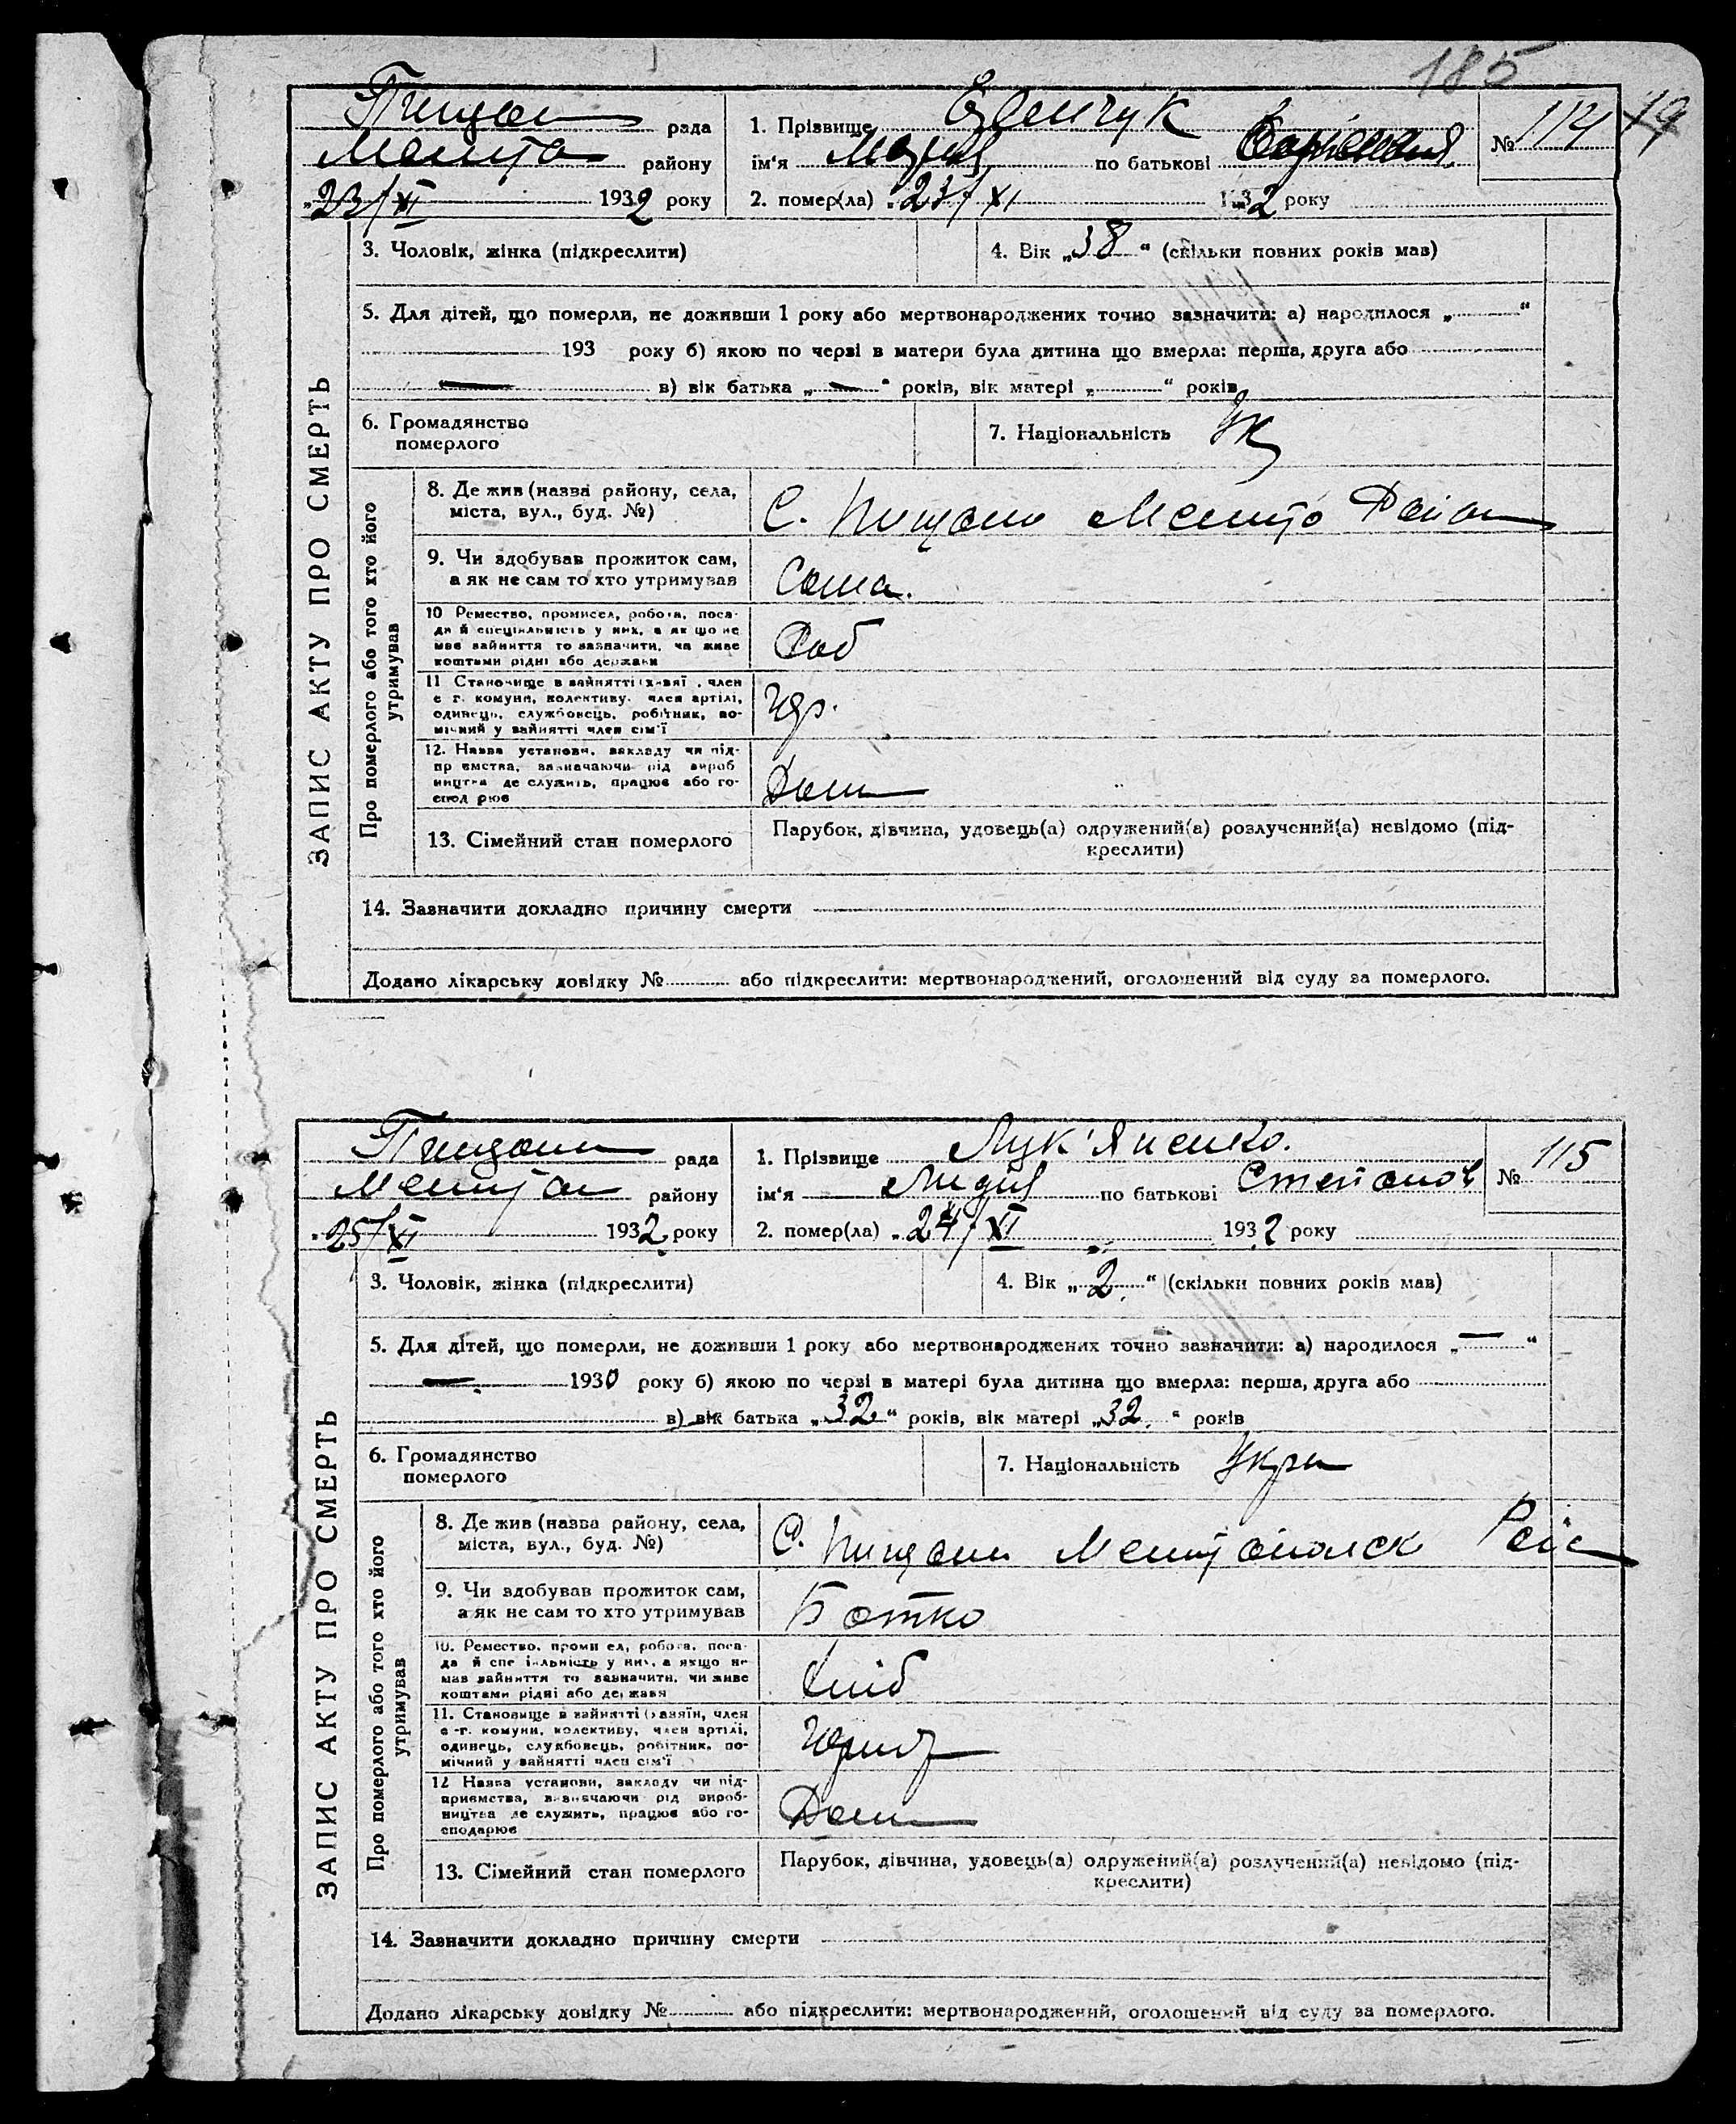 185
рада
району
"23/XI 1932 року
1. Прізвище
ім'я Марія по батькові
2. помер(ла) "23/XI 1932 року
№ 114 19
ЗАПИС АКТУ ПРО СМЕРТЬ
3. Чоловік, жінка (підкреслити)
4. Вік „38“ (скільки повних років мав)
5. Для дітей, що померли, не доживши 1 року або мертвонароджених точно зазначити: а) народилося „ “
193 року б) якою по черзі в матери була дитина що вмерла: перша, друга або
в) вік батька „—“ років, вік матері „ “ років
6. Громадянство
померлого
7. Національність Ук
Про померлого або того хто його
утримував
8. Де жив (назва району, села,
міста, вул., буд. №)
С. Піщани Меліто Район
9. Чи здобував прожиток сам,
а як не сам то хто утримував
Сама.
10 Ремество, промисел, робота, поса-
ди й спеціяльність у них, а як що не
мав зайняття то зазначити, чи живе
коштами рідні або держави
Роб
11 Становище в зайнятті (хазяї , член
с г. комуни, колективу, член артілі,
одинець, службовець, робітник, по-
мічний у зайнятті член сім'ї
12. Назва установи, закладу чи під-
пр ємства, зазначаючи рід вироб
ництва де служить, працює або го-
спод рює
Дом
13. Сімейний стан померлого
Парубок, дівчина, удовець(а) одружений(а) розлучений(а) невідомо (під-
креслити)
14. Зазначити докладно причину смерти
Додано лікарську довідку № або підкреслити: мертвонароджений, оголошений від суду за померлого.
Піщани рада
району
"25/XI 1932 року
1. Прізвище Лук'яненко.
ім'я Лидія по батькові Степанов
2. помер(ла) "24/XI 1932 року
№ 115
ЗАПИС АКТУ ПРО СМЕРТЬ
3. Чоловік, жінка (підкреслити)
4. Вік „2“ (скільки повних років мав)
5. Для дітей, що померли, не доживши 1 року або мертвонароджених точно зазначити: а) народилося „—“
— 1930 року б) якою по черзі в матері була дитина що вмерла: перша, друга або
в) вік батька „32“ років, вік матері „32“ років
6. Громадянство
померлого
7. Національність Укра
Про померлого або того хто його
утримував
8. Де жив (назва району, села,
міста, вул., буд. №)
С. Піщани Мелітопольск Рай
9. Чи здобував прожиток сам,
а як не сам то хто утримував
Батко
10. Ремество, промисел, робота, поса-
да й спеціяльність у них, а якщо не
мав зайняття то зазначити, чи живе
коштами рідні або держави
Хліб
11. Становище в зайнятті (хазяїн, член
с-г. комуни, колективу, член артілі,
одинець, службовець, робітник, по-
мічний у зайнятті член сім'ї
12 Назва установи, закладу чи під-
приємства, визначаючи рід вироб-
ництва де служить, працює або го-
сподарює
Дом
13. Сімейний стан померлого
Парубок, дівчина, удовець(а) одружений(а) розлучений(а) невідомо (під-
креслити)
14. Зазначити докладно причину смерти
Додано лікарську довідку № або підкреслити: мертвонароджений, оголошений від суду за померлого.